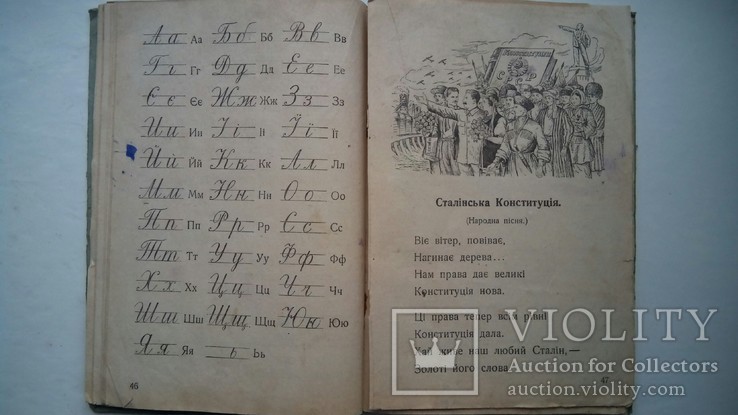 Аа Аа Бб Бб Вв Вв
Гг Гг Дд Дд Ее Ее
Єє Єє Жж Жж Зз Зз
Ии Ии Іі Іі Її Її
Йй Йй Кк Кк Лл Лл
Мм Мм Нн Нн Оо Оо
Пп Пп Рр Рр Сс Сс
Тт Тт Уу Уу Фф Фф
Хх Хх Цц Цц Чч Чч
Шш Шш Щщ Щщ Юю Юю
Яя Яя ь Ьь
46
Сталінська Конституція.
(Народна пісня.)
Віє вітер, повіває,
Нагинає дерева...
Нам права дає великі
Конституція нова.
Ці права тепер всім рівні
Конституція дала.
Хай живе наш любий Сталін,—
Золоті його слова
47
VIOLITY
Auction for Collectors
auction.violity.com